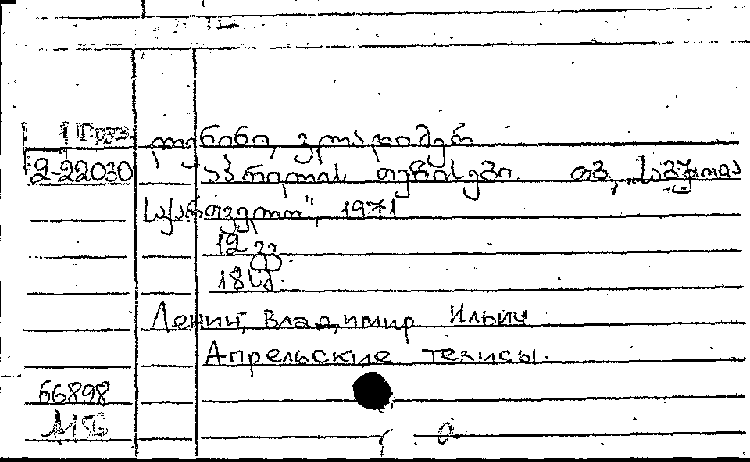 Груз. ლენინი, ვლადიმერ
2-22030 აპრილის თეზისები. თბ, „საბჭოთა
საქართველო", 1971
12 გვ.
18 სმ.
Ленин, Владимир Ильич
Апрельские тезисы.
66898